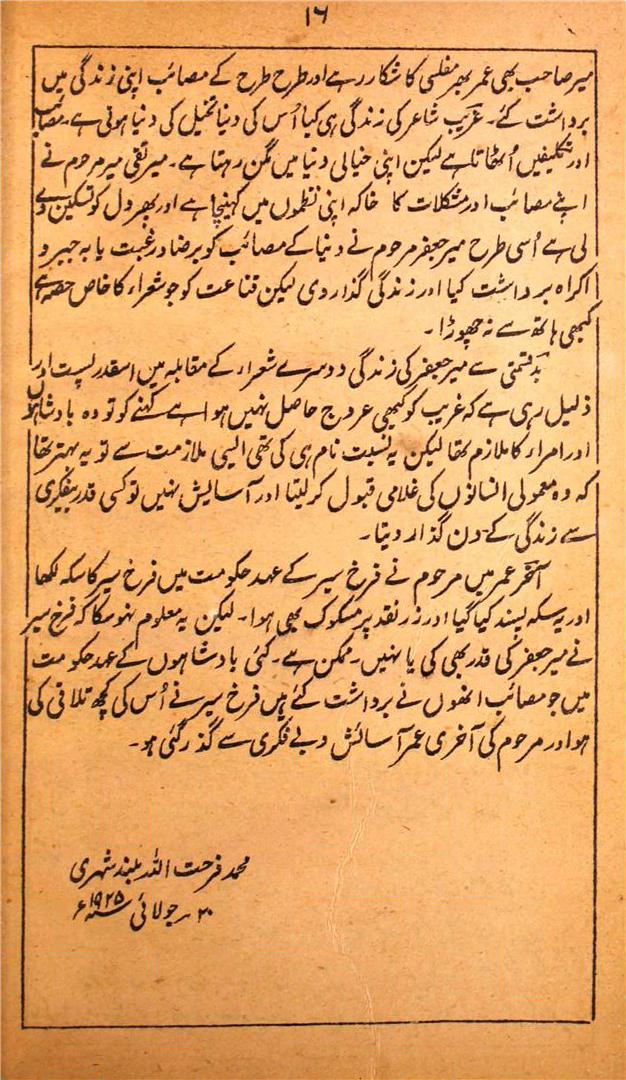 ۱۶
میر صاحب بھی عمر بھر مفلسی کا شکار رہے اور طرح طرح کے مصائب اپنی زندگی میں
برداشت کئے۔ غریب شاعر کی زندگی ہی کیا اُس کی دنیا تخیل کی دنیا ہوتی ہے۔ مصائب
اور تکلیفیں اُٹھاتا ہے لیکن اپنی خیالی دنیا میں مگن رہتا ہے۔ میر تقی میر مرحوم نے
اپنے مصائب اور مشکلات کا خاکہ اپنی نظموں میں کھینچا ہے اور پھر دل کو تسکین دے
لی ہے اُسی طرح میر جعفر مرحوم نے دنیا کے مصائب کو برضا و رغبت یا بہ جبر و
اکراہ برداشت کیا اور زندگی گذار دی لیکن قناعت کو جو شعراء کا خاص حصہ ہے
کبھی ہاتھ سے نہ چھوڑا۔
بدقسمتی سے میر جعفر کی زندگی دوسرے شعراء کے مقابلہ میں اسقدر پست اور
ذلیل رہی ہے کہ غریب کو کبھی عروج حاصل نہیں ہوا ہے کہنے کو تو وہ بادشاہوں
اور امراء کا ملازم تھا لیکن یہ نسبت نام ہی کی تھی ایسی ملازمت سے تو یہ بہتر تھا
کہ وہ معمولی انسانوں کی غلامی قبول کر لیتا اور آسایش نہیں تو کسی قدر بیفکری
سے زندگی کے دن گذار دیتا۔
آخر عمر میں مرحوم نے فرخ سیر کے عہد حکومت میں فرخ سیر کا سکہ لکھا
اور یہ سکہ پسند کیا گیا اور زر نقد پر مسکوک بھی ہوا۔ لیکن یہ معلوم نہو سکا کہ فرخ سیر
نے میر جعفر کی قدر بھی کی یا نہیں۔ ممکن ہے۔ کئی بادشاہوں کے عہد حکومت
میں جو مصائب انھوں نے برداشت کئے ہیں فرخ سیر نے اُس کی کچھ تلافی کی
ہو اور مرحوم کی آخری عمر آسائش و بے فکری سے گذر گئی ہو۔
محمد فرحت اللہ بلند شہری
۲۰ جولائی سنہ ۱۹۲۵ء